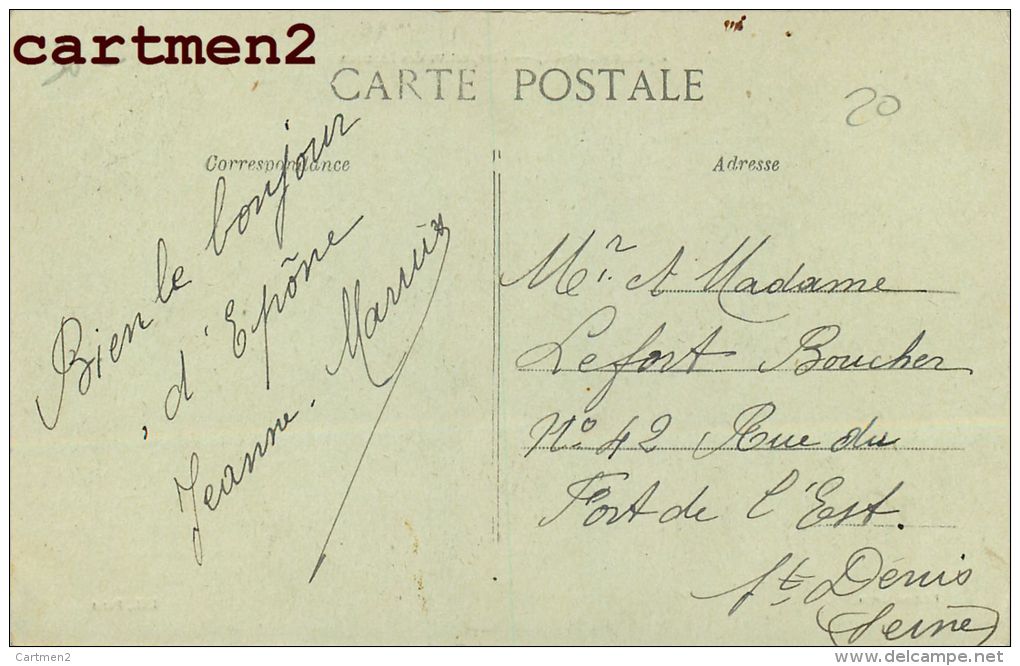 cartmen2
CARTE POSTALE
20
Correspondance
Adresse
Bien le bonjour
d'Epône
Jeanne. Marius
Mr. et Madame
Lefort Boucher
No. 42 Rue du
Fort de l'Est.
St. Denis
(Seine)
Cartmen2
www.delcampe.net